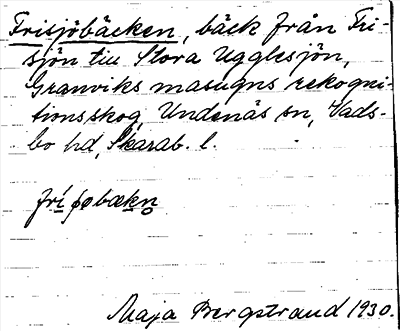 Frisjöbäcken, bäck från Fri-
sjön till Stora Ugglesjön,
Granviks masugns rekogni-
tionsskog, Undenäs sn, Vads-
bo hd, Skarab. l.
Maja Bergstrand 1930.